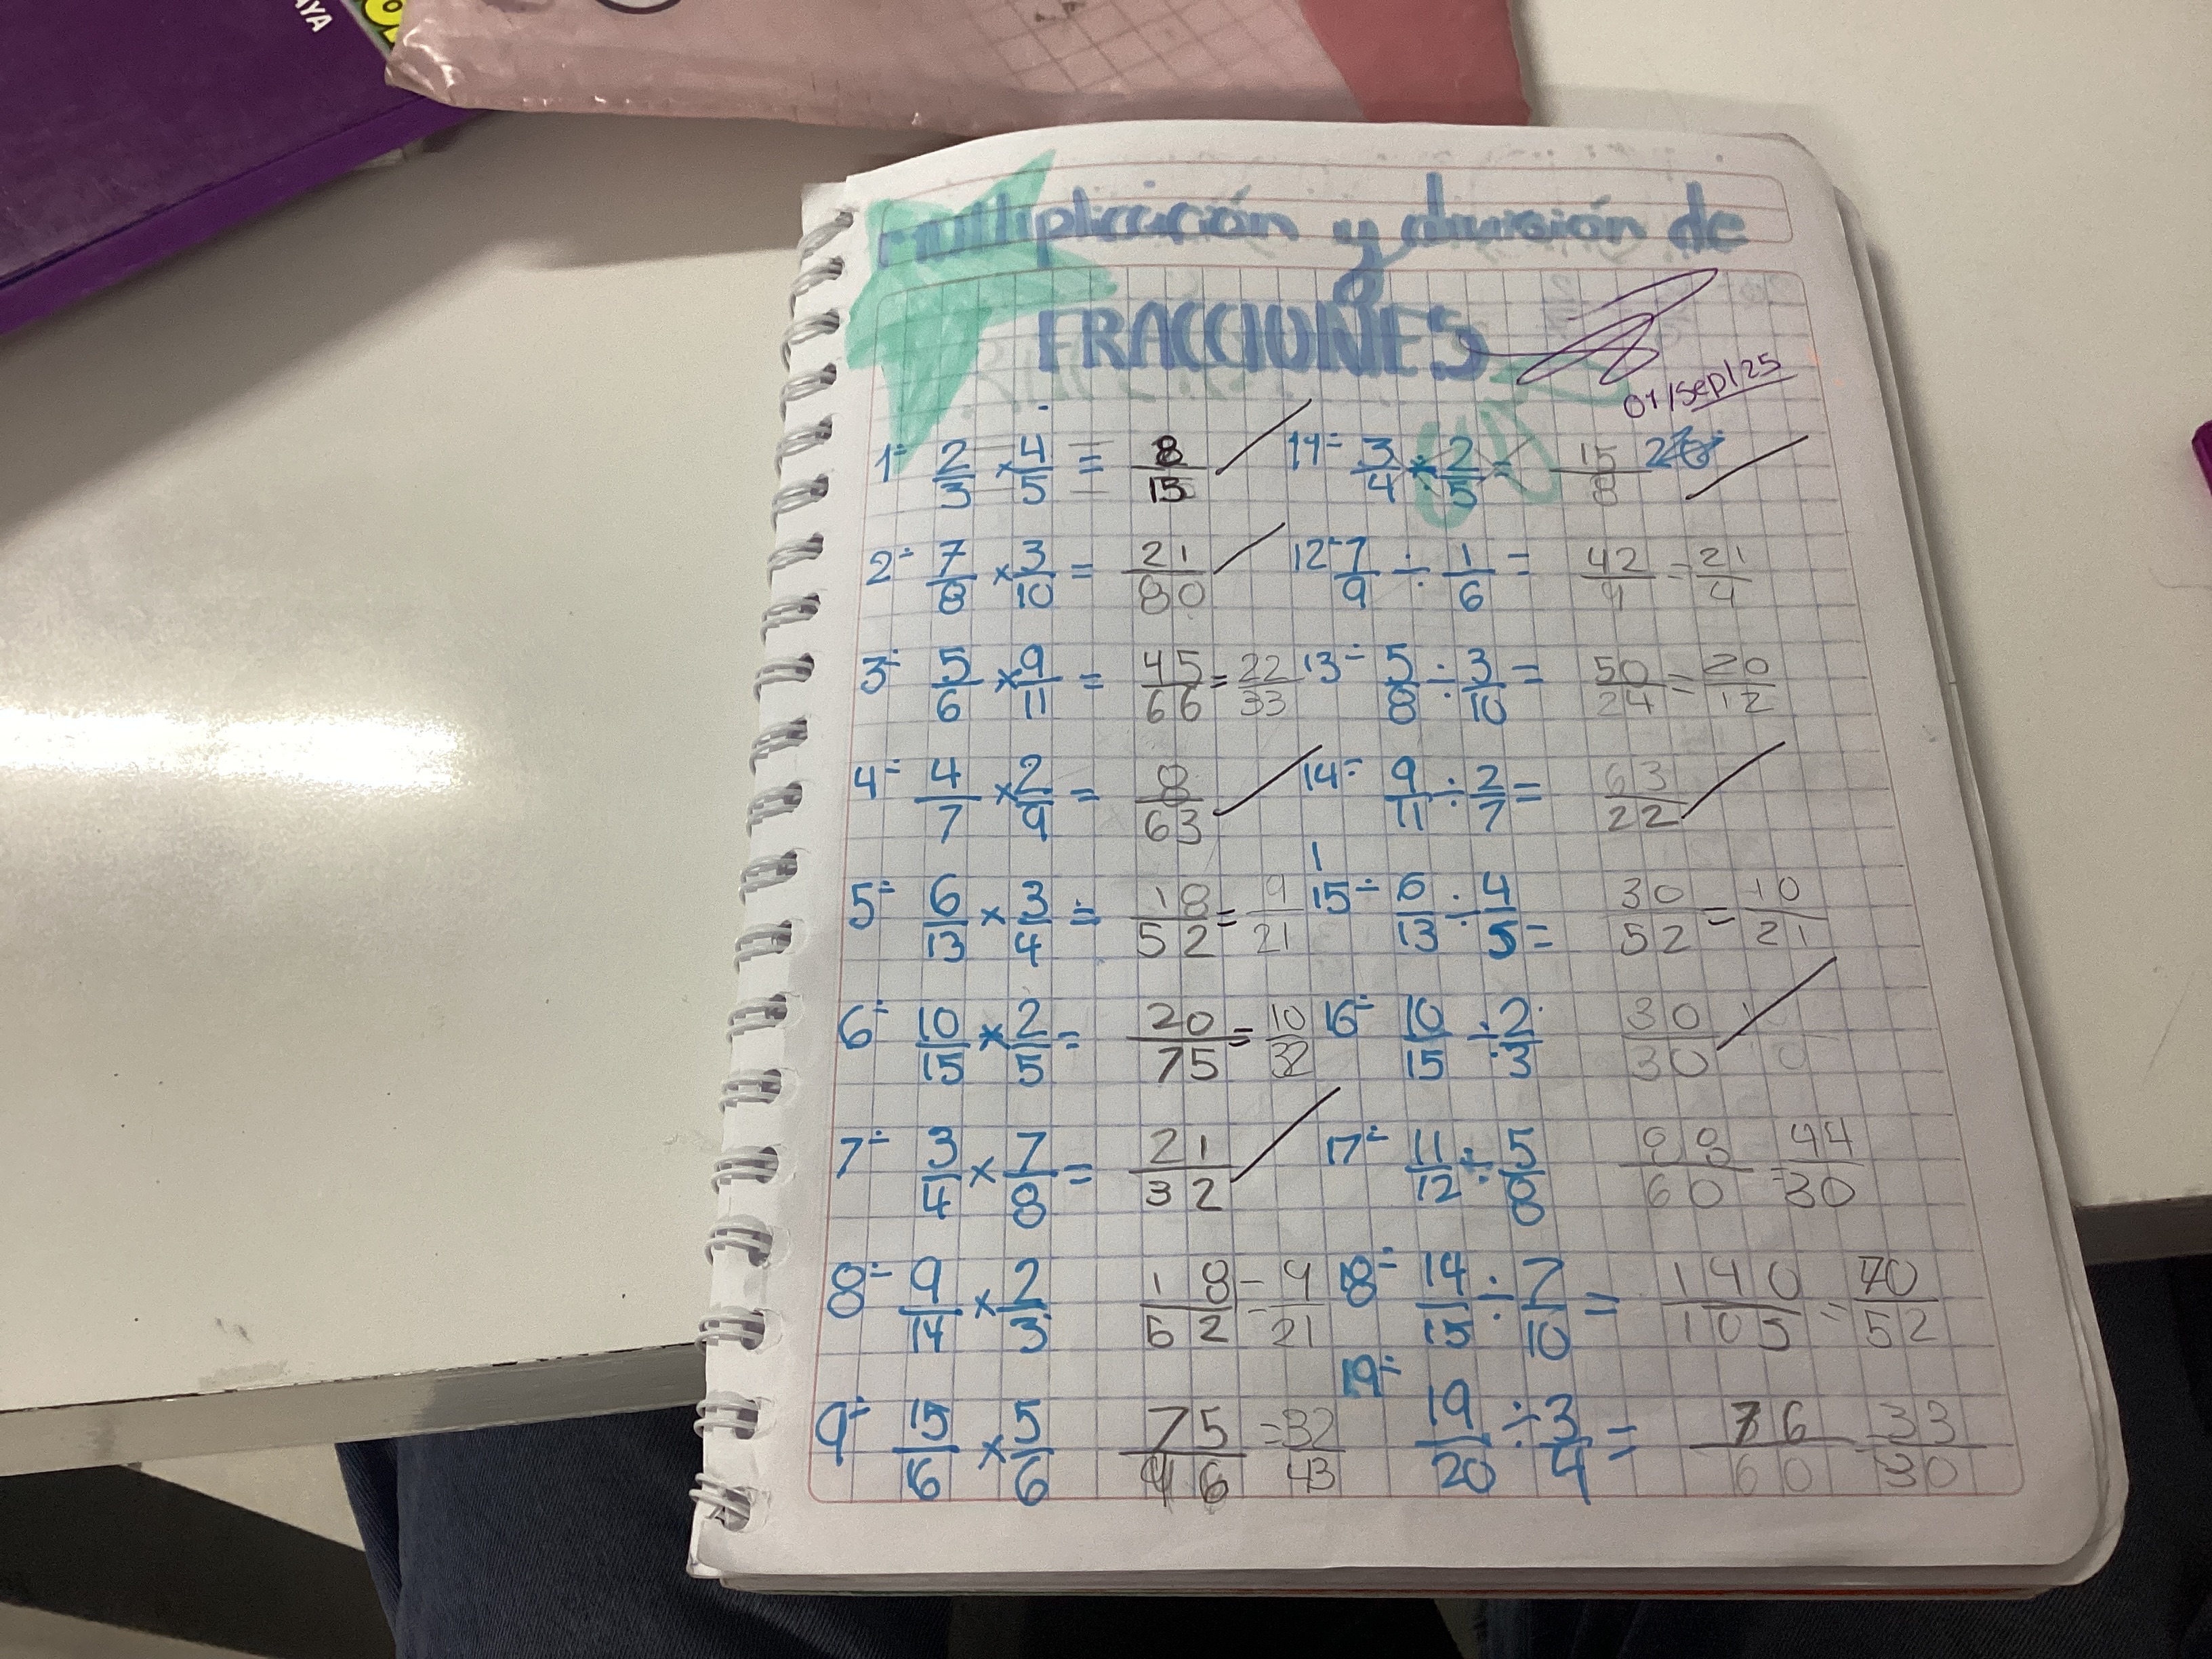 AYA
Multiplicación y división de
FRACCIONES
01/sep/25
1- 2/3 × 4/5 = 8/15
2- 7/8 × 3/10 = 21/80
3- 5/6 × 9/11 = 45/66 = 22/33
4- 4/7 × 2/9 = 8/63
5- 6/13 × 3/4 = 18/52 = 9/21
6- 10/15 × 2/5 = 20/75 = 10/32
7- 3/4 × 7/8 = 21/32
8- 9/14 × 2/3 18/52 = 9/21
9- 15/6 × 5/6 75/46 = 32/43
11- 3/4 ÷ 2/5 = 15/8
12- 7/9 ÷ 1/6 = 42/9 = 21/4
13- 5/8 ÷ 3/10 = 50/24 = 20/12
14- 9/11 ÷ 2/7 = 63/22
15- 6/13 ÷ 4/5 = 30/52 = 10/21
16- 10/15 ÷ 2/3 30/30
17- 11/12 ÷ 5/8 88/60 = 44/30
18- 14/15 ÷ 7/10 = 140/105 = 70/52
19- 19/20 ÷ 3/4 = 76/60 = 33/30